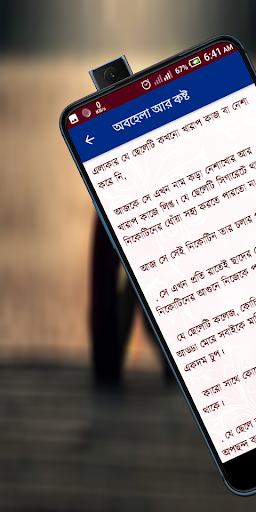 0
KB/s
67%
6:41 AM
অবহেলা আর কষ্ট
এলাকার যে ছেলেটি কখনো খারাপ কাজ বা নেশা
করে নি,
আজকে সে এখন নাম করা নেশাখোর আর
খারাপ কাজে লিপ্ত। যে ছেলেটি সিগারেটে
নিকোটিনের ধোঁয়া সহ্য করতে পারতো না
আজ সে সেই নিকোটিন তার চলার
. সে এখন প্রতি রাতেই ছাদের
নিকোটিনের আগুনে নিজেকে
যে ছেলেটি কলেজ,
আড্ডা মেরে সবাইকে
একদম চুপ।
কারো সাথে
থাকে।
. যে ছেলে
অপছন্দ